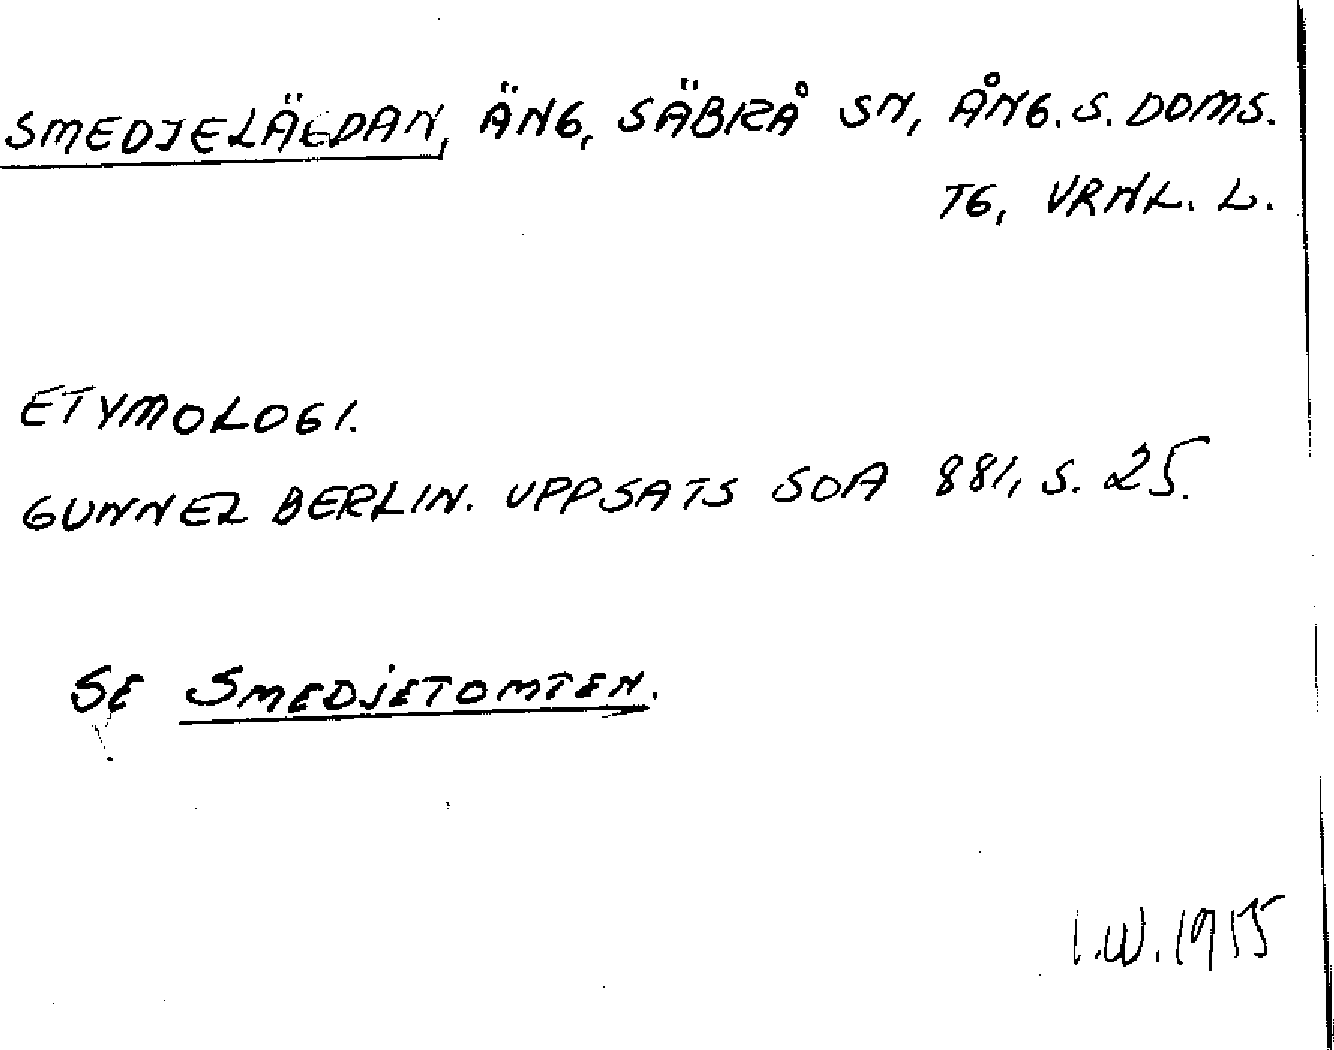 SMEDJELÄGDAN, ÄNG, SÄBRÅ SN, ÅNG. S. DOMS.
TG, VRNL. L.
ETYMOLOGI.
GUNNEL BERLIN. UPPSATS SOA 881, S. 25.
SE SMEDJETOMTEN.
I.W. 1955